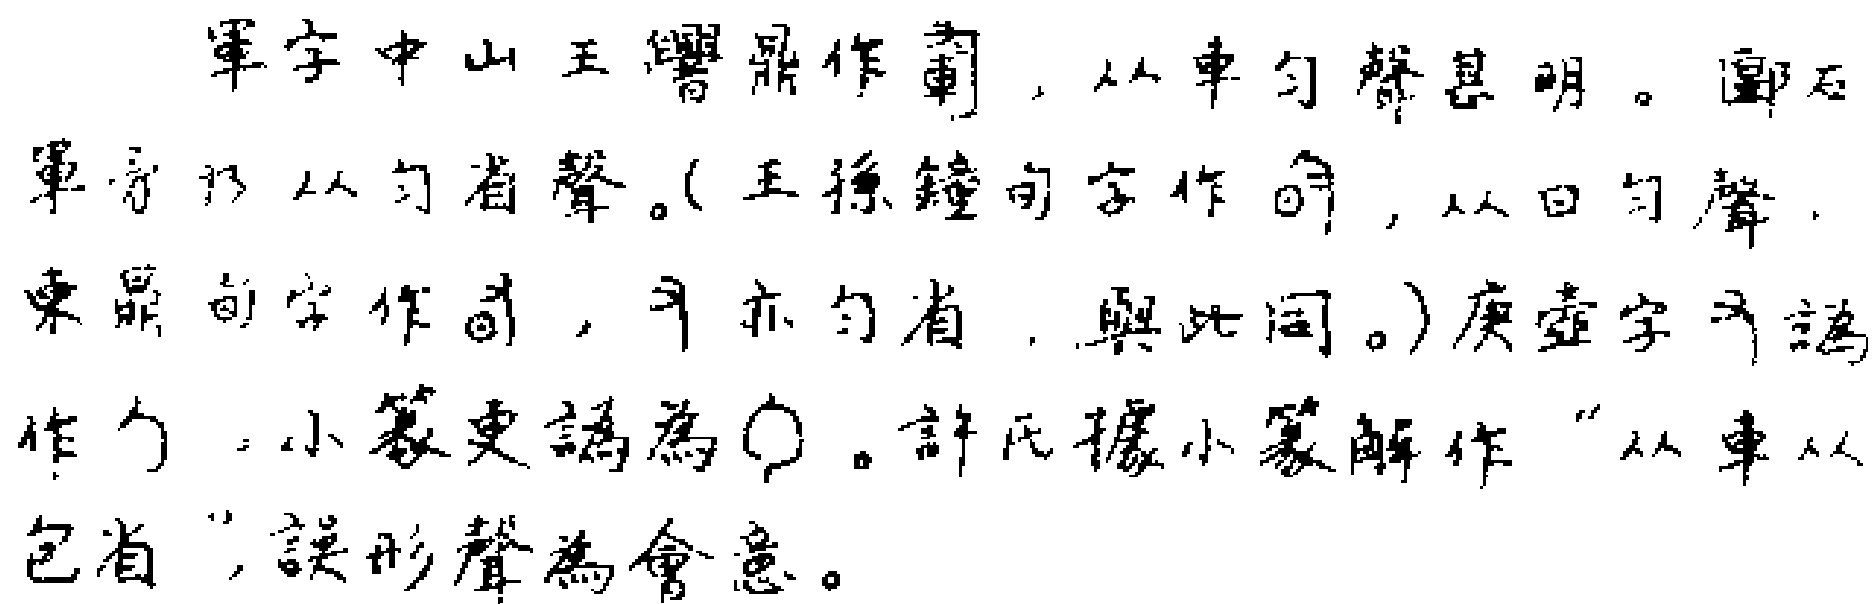 軍字中山王鼎作，从車勻聲甚明。郾右
軍字乃从勻省聲。(王孫鐘旬字作，从日勻聲．
東鼎旬字作，亦勻省．與此同。)庚壺字譌
作勹．小篆更譌為。許氏據小篆解作“从車从
包省”，誤形聲為會意。